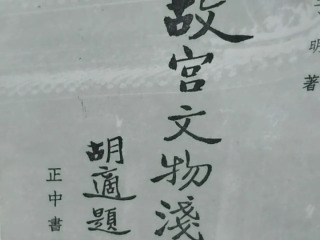 明著
故宮文物淺
胡適題
正中書